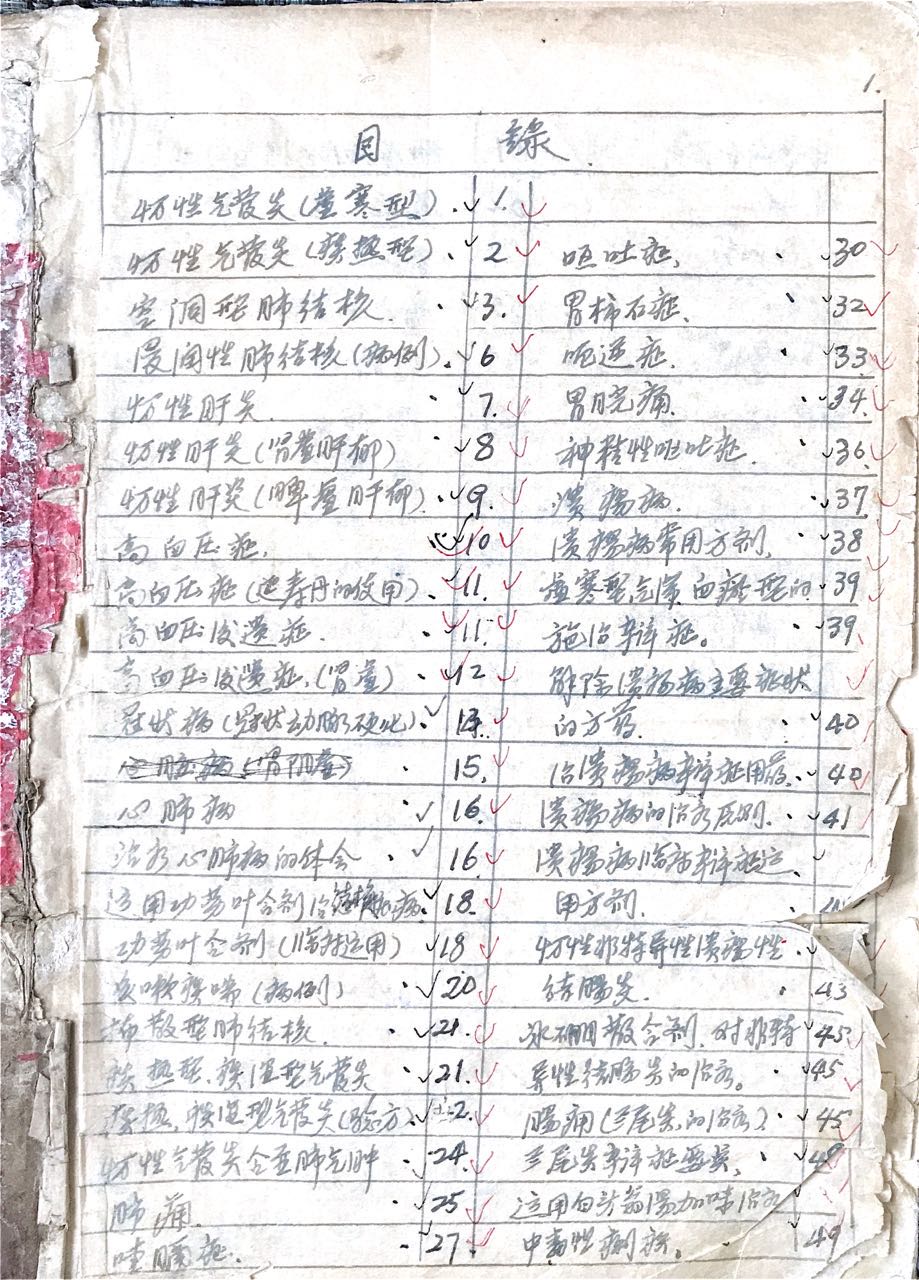 1.
目 录
慢性气管炎(虚寒型) 1.
慢性气管炎(痰热型) 2
空洞型肺结核 3.
浸润性肺结核(病例) 6
慢性肝炎 7.
慢性肝炎(肾虚肝郁) 8
慢性肝炎(脾虚肝郁) 9.
高血压症. 10
高血压症(延寿丹的使用) 11.
高血压后遗症. 11.
高血压后遗症.(肾虚) 12
冠状病(冠状动脉硬化) 14.
15.
心肺病 16.
治疗心肺病的体会 16
18.
功劳叶合剂(临床运用) 18
炙嗽痰喘(病例) 20
播散型肺结核. 21.
痰热型.痰湿型气管炎 21.
痰热.痰湿型气管炎(验方)
慢性气管炎合并肺气肿 24.
肺痈. 25
哮喘症. 27.
呕吐症, 30
胃柿石症. 32
呃逆症. 33
胃脘痛. 34.
神经性呕吐症. 36.
溃疡病. 37.
溃疡病常用方剂, 38
虚寒型,气滞.血瘀型的 39
施治辩症。 39.
解除溃疡病主要症状
的方药. 40
治溃疡病辩症用药. 40
溃疡病的治疗原则. 41
溃疡病临床辩症运
用方剂.
慢性非特异性溃疡性
结肠炎. 43
冰硼散合剂.对非特 45
异性结肠炎的治疗。 45
腸痈(兰尾炎的治疗) 45
兰尾炎辩症要点,
运用白头翁汤加味治疗
中毒性痢疾。 49